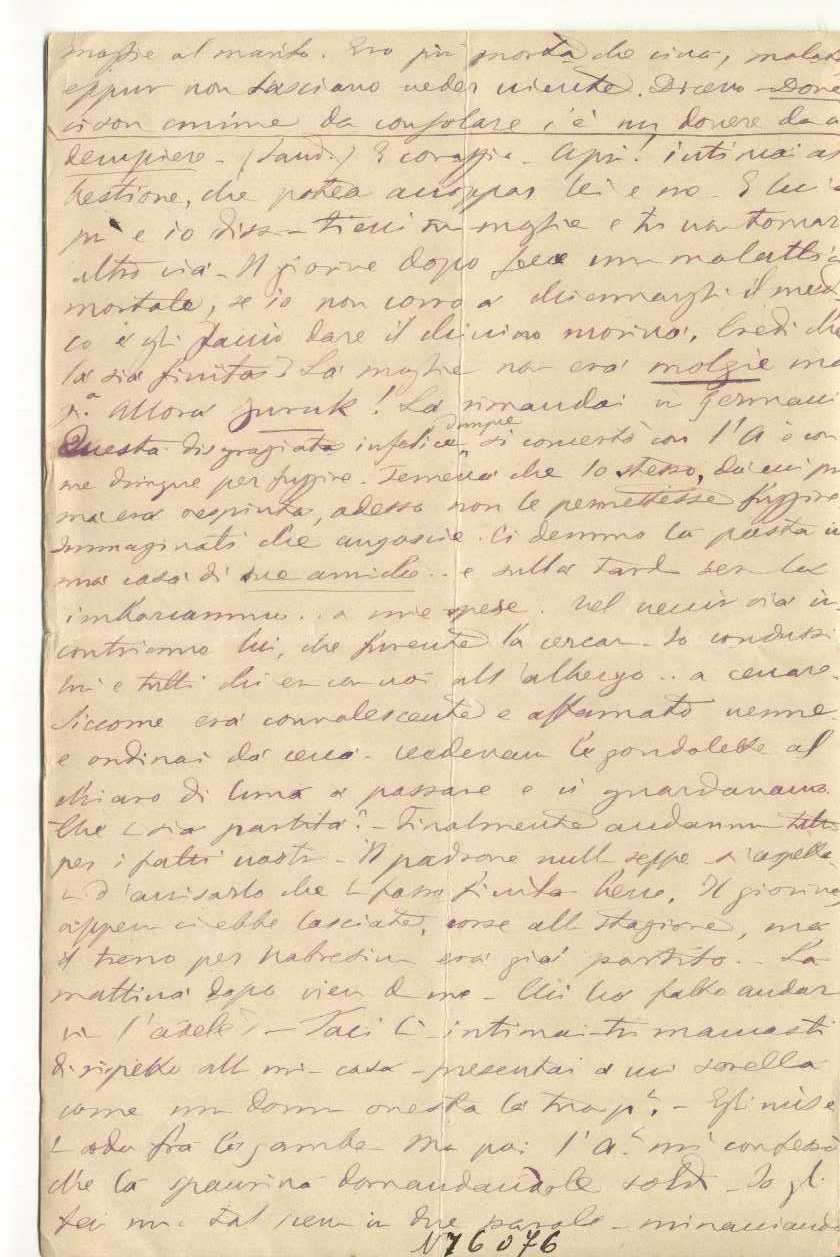 moglie al marito. Ero più morta che viva, malata
eppur non lasciavo veder niente. Dicevo - Dove
ci son anime da consolare c'è un dovere da a
dempiere - (Sand.) E coraggio. Apri! intimai a
testione, che potea accoppar lei e me. E lui a
prì e io dissi - tieni tu moglie e tu non tornar
altro via - Il giorno dopo fece una malattia
mortale, se io non corro a chiamargli il medi
co e gli faccio dare il chinino moriva. Credi che
la sia finita? La moglie non era moglie ma
Allora! La rimandai in Germani
Questa disgraziata infelice dunque si concertò con l'A e con
me dunque per fuggire. Temeva che lo stesso, da cui pri
ma era respinta, adesso non le permettesse fuggire
Immaginati che angoscie. Ci demmo la posta u
na casa di sue amiche.. e sulla tard sera la
imbarcammo.. a mie spese. Nel venir via in
contriamo lui, che furente la cercava. Io condussi
lui e tutti chi era con noi all'albergo.. a cenare.
Siccome era convalescente e affamato venne
e ordinai da cena. vedevam le gondolette al
chiaro di luna a passare e si guardavamo.
Che sia partita? - Finalmente andammo tutti
per i fatti nostri - Il padrone nulla seppe
d'avisarlo che fosse finita bene. Il giovine
appena ci ebbe lasciate, corse alla stazione, ma
il treno per Nabresina era già partito.. La
mattina dopo viene da me - Chi ha fatto andar
via l' - Taci lì - intimai - tu mancasti
di rispetto alla mia casa - presentai a mia sorella
come una donna onesta la tua p. - Egli mise
la coda fra le gambe - Ma poi l'A. mi confessò
che la spauriva domandandole soldi - Io gli
in due parole - minacciando
N76076